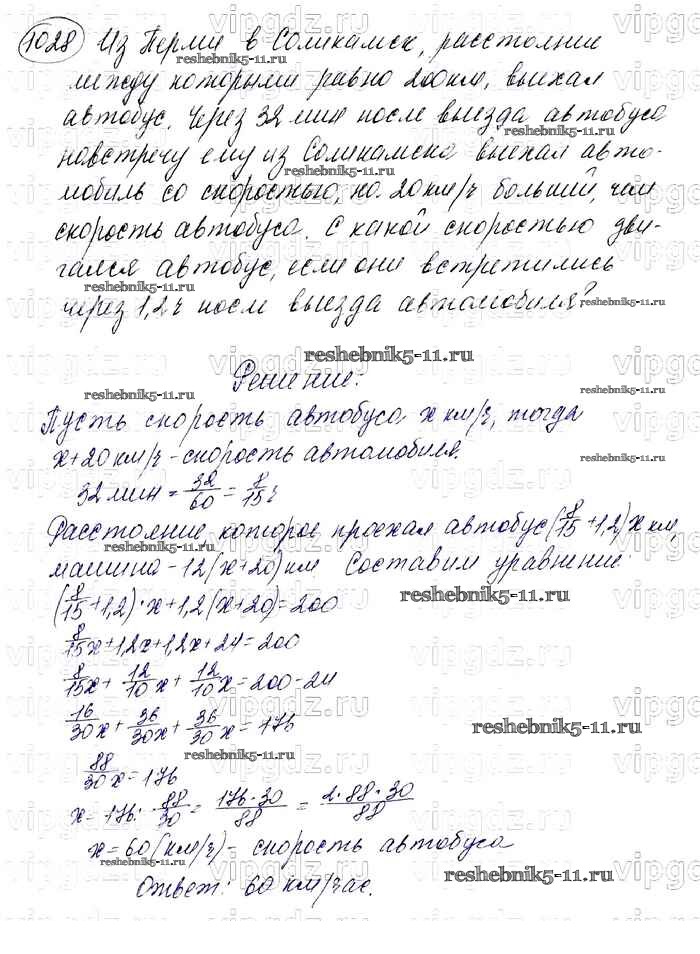 1028 Из Перми в Соликамск, расстояние
между которыми равно 200км, выехал
автобус. Через 32 мин после выезда автобуса
навстречу ему из Соликамска выехал авто-
мобиль со скоростью, на 20 км/ч больший, чем
скорость автобуса. С какой скоростью дви-
гался автобус, если они встретились
через 1,2ч после выезда автомобиля?
reshebnik5-11.ru
Решение:
Пусть скорость автобуса x км/ч, тогда
x+20 км/ч - скорость автомобиля.
32 мин = 32/60 = 8/15 ч
Расстояние которое проехал автобус (8/15 + 1,2) x км,
машина - 12 (x+20) км Составим уравнение:
(8/15 + 1,2) · x + 1,2 (x+20) = 200
8/15x + 1,2x + 1,2x + 24 = 200
8/15x + 12/10 x + 12/10 x = 200 - 24
16/30x + 36/30x + 36/30 x = 176
88/30 x = 176
x = 176 : 88/30 = 176·30/88 = 2·88·30/88
x = 60 (км/ч) - скорость автобуса
Ответ: 60 км/час.